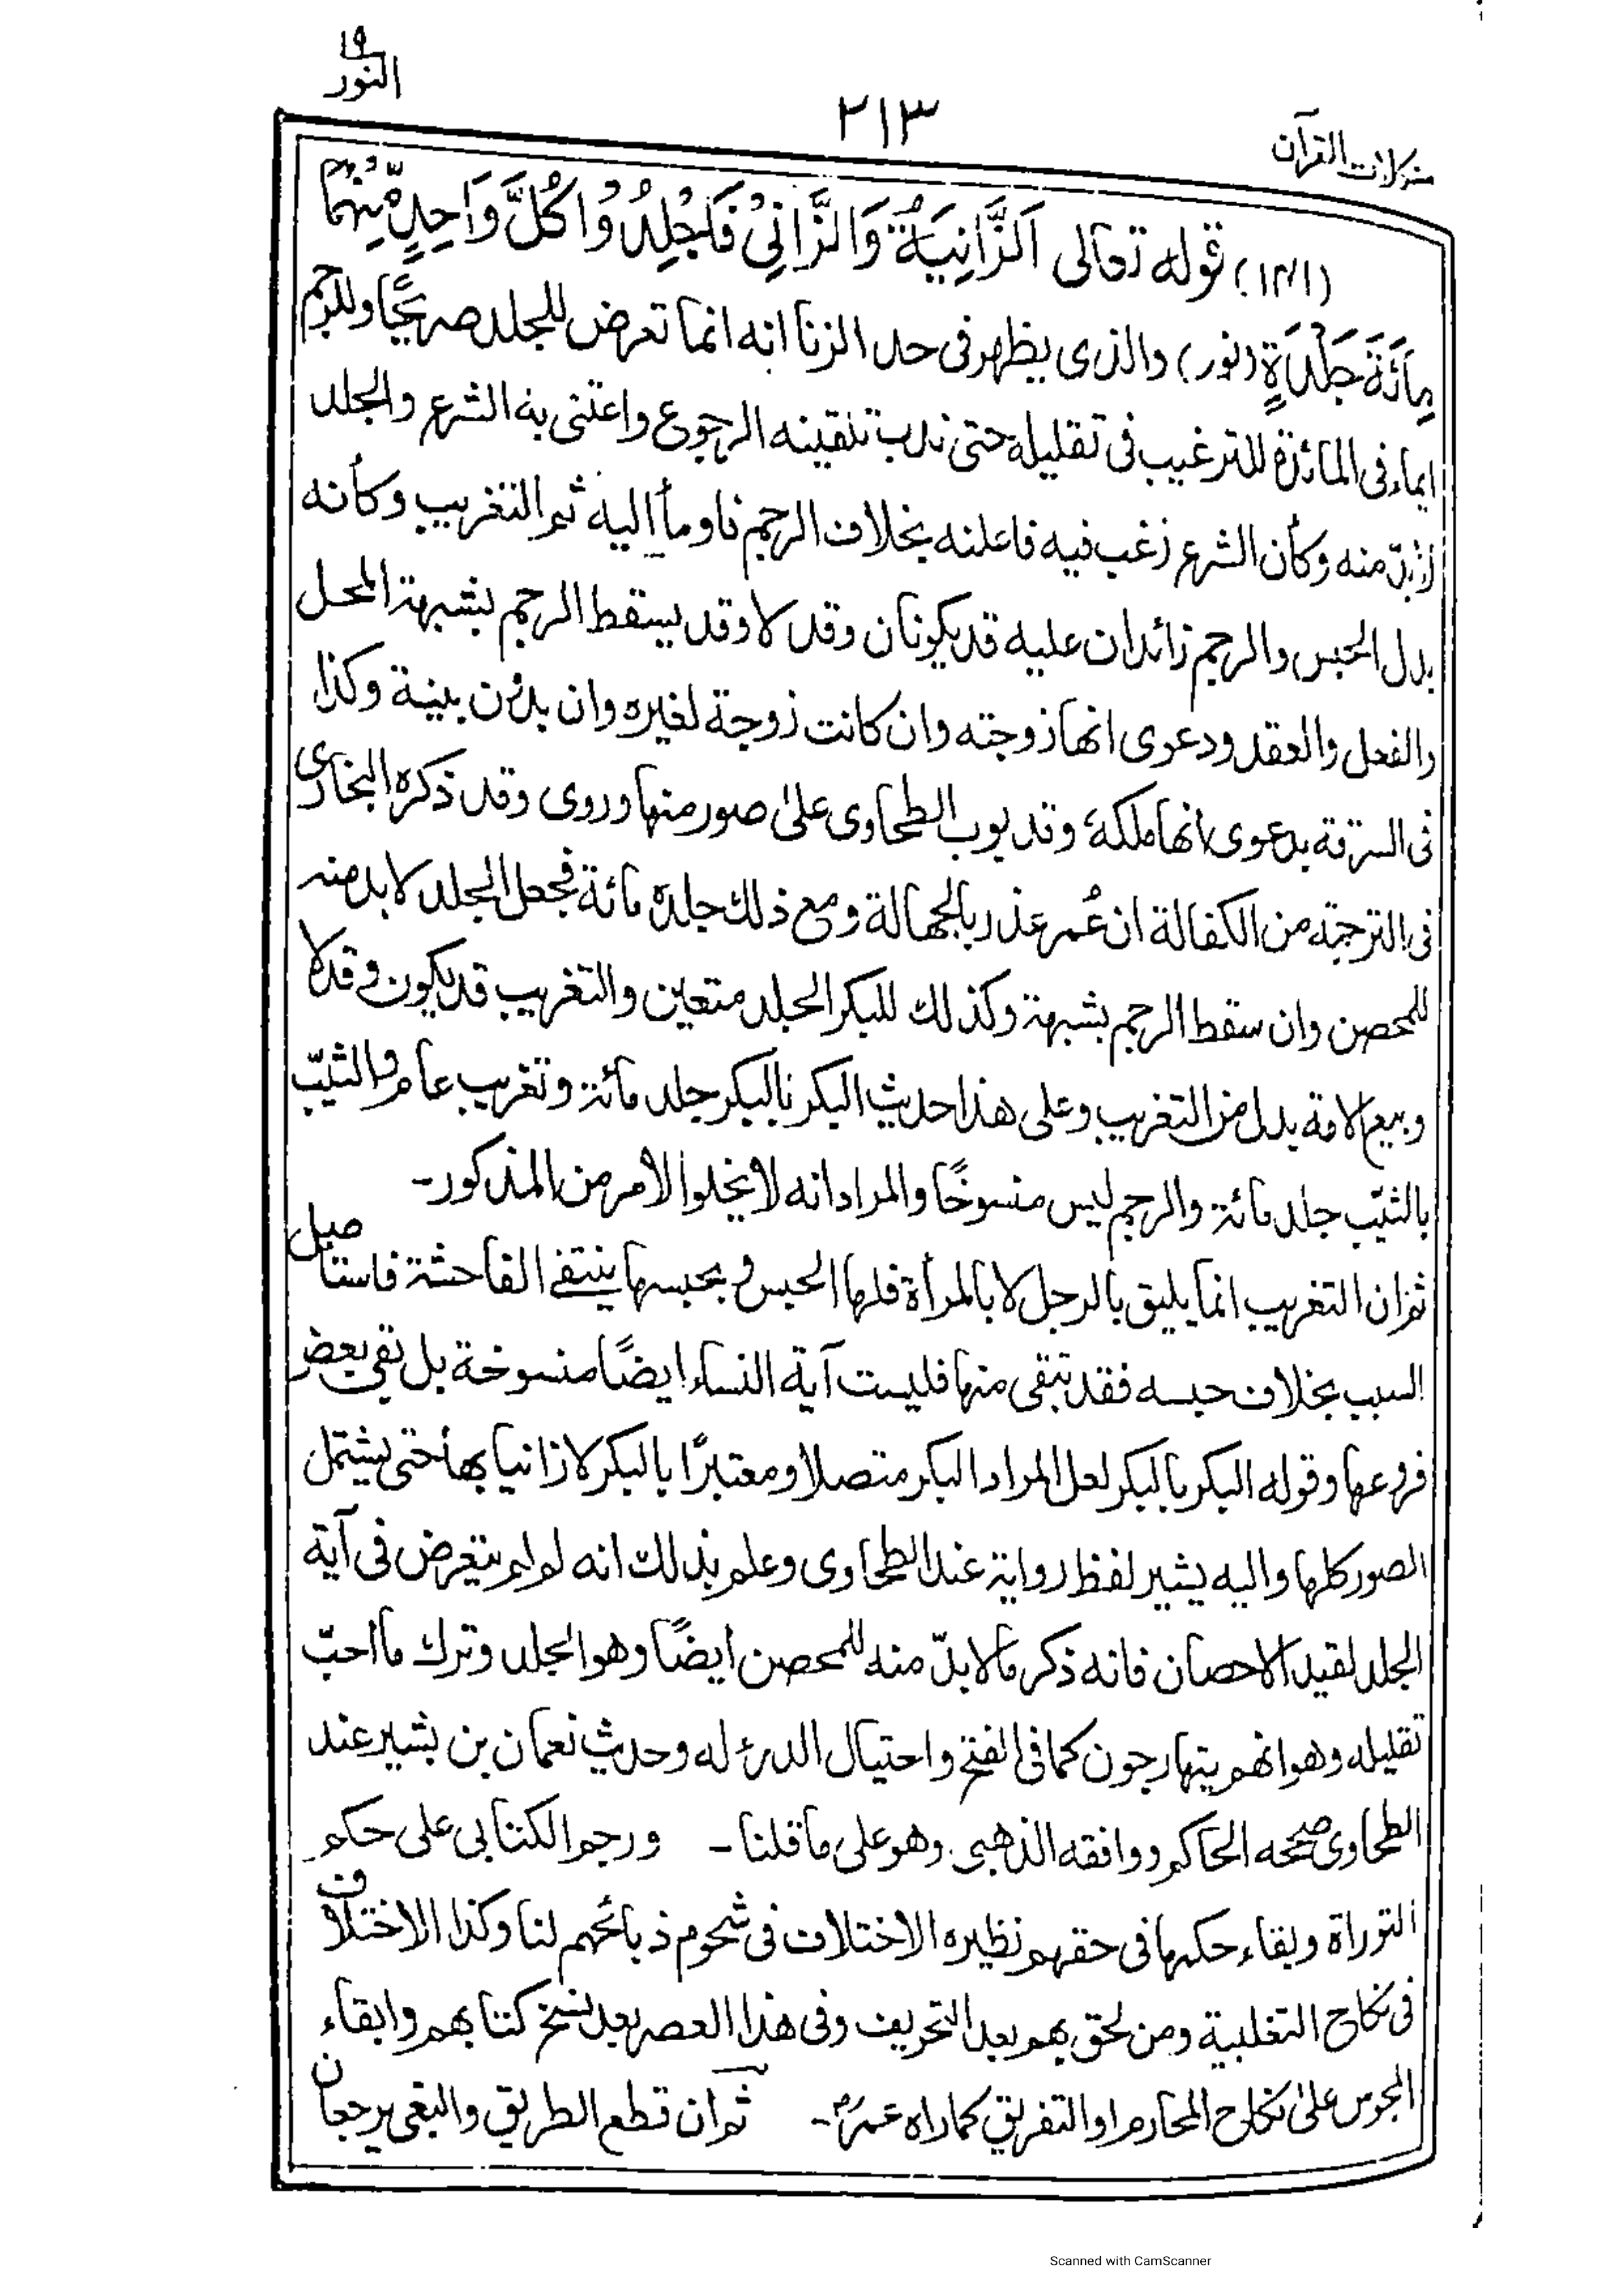 ١٩
النور
٢١٣
مشكلات القرآن
(١٢١) قوله تعالى اَلزَّانِيَةُ وَالزَّانِيْ فَاجْلِدُوْا كُلَّ وَاحِدٍ مِّنْهُمَا
مِائَةَ جَلْدَةٍ (نور) والذى يظهر فى حد الزنا انه انما تعرض للجلد صريحًا وللرجم
ايماء فى المائدة للترغيب فى تقليله حتى ندب تلقينه الرجوع واعتنى به الشرع والجلد
لابدّ منه وكأن الشرع رغب فيه فاعلنه بخلاف الرجم فاومأ اليه ثم التغريب وكأنه
بدل الحبس والرجم زائدان عليه قد يكونان وقد لا وقد يسقط الرجم بشبهة المحل
والفعل والعقد ودعوى انها زوجته وان كانت زوجة لغيره وان بدون بينة وكذا
فى السرقة بدعوى انها ملكه وقد بوب الطحاوى على صور منها وروى وقد ذكره البخارى
فى الترجمة من الكفالة ان عُمر عذر بالجهالة ومع ذلك جلده مائة فجعل الجلد لا بد منه
للمحصن وان سقط الرجم بشبهة وكذلك للبكر الجلد متعين والتغريب قد يكون وقد لا
وبيع الامة بدل من التغريب وعلى هذا حديث البكر بالبكر جلد مائة وتغريب عام والثيّب
بالثيّب جلد مائة والرجم ليس منسوخًا والمراد انه لا يخلوا الأمر من المذكور-
ثم ان التغريب انما يليق بالرجل لا بالمرأة فلها الحبس و بحبسها ينتفى الفاحشة فاستاصل
السبب بخلاف حبسه فقد تبقى منها فليست آية النساء ايضًا منسوخة بل بقى بعض
فروعها وقوله البكر بالبكر لعل المراد البكر متصلا ومعتبرًا بالبكر لا زانيا بها حتى يشتمل
الصور كلها واليه يشير لفظ رواية عند الطحاوى وعلم بذلك انه لم لم يتعرض فى آية
الجلد لقيد الاحصان فانه ذكر ما لا بدّ منه للمحصن ايضًا وهو الجلد وترك ما احبّ
تقليله وهو انهم يتهارجون كما فى الفتح واحتيال الدرء له وحديث نعمان بن بشير عند
الطحاوى صححه الحاكم ووافقه الذهبى وهو على ما قلنا - ورجم الكتابى على حكم
التوراة وبقاء حكمها فى حقهم نظيره الاختلاف فى شحوم ذبائحهم لنا وكذا الاختلاف
فى نكاح التغلبية ومن لحق بهم بعد التحريف وفى هذا العصر بعد نسخ كتابهم وابقاء
المجوس على نكاح المحارم او التفريق كما راه عمرؓ - ثم ان قطع الطريق والبغى يرجعان
Scanned with CamScanner